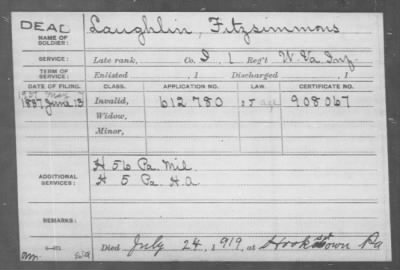 DEAD
Laughlin, Fitzsimmons
NAME OF SOLDIER:
SERVICE: Late rank, Co. I 1 Reg't W. Va Inf.
TERM OF SERVICE: Enlisted , 1 Discharged , 1
DATE OF FILING. CLASS. APPLICATION NO. LAW. CERTIFICATE NO.
1887 June 13 Invalid, 612 780 908067
Widow,
Minor,
ADDITIONAL SERVICES:
H 56 Pa. Mil.
H 5 Pa. H.A.
REMARKS:
Died July 24, 1919, at Hookstown Pa